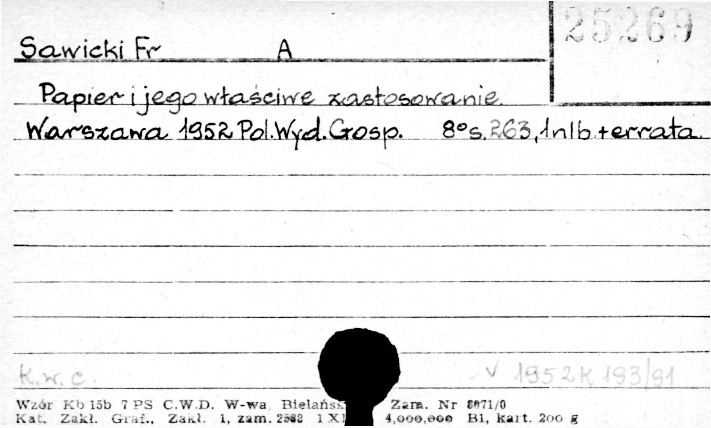 25269
Sawicki Fr A
Papier i jego właściwe zastosowanie.
Warszawa 1952 Pol. Wyd. Gosp. 8° s. 263, 1 nlb. + errata.
K.w.c. V 1952 K 193/91
Wzór Kb 15b 7 PS C.W.D. W-wa, Bielańsk Zam. Nr 8071/0
Kat. Zakł. Graf., Zakł. 1, zam. 2582 1 XI 4,000,000 B1, kart. 200 g